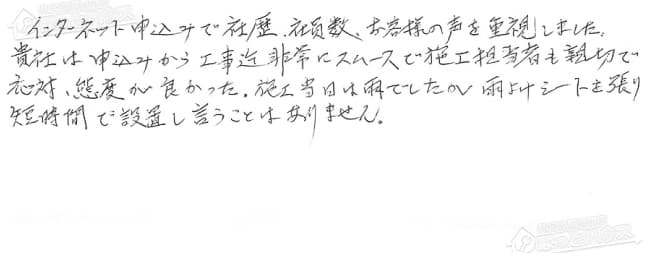 インターネット申込みで社歴、社員数、お客様の声を重視しました。
貴社は申込みから工事迄非常にスムースで施工担当者も親切で
応対、態度が良かった。施工当日は雨でしたが雨よけシートを張り
短時間で設置し言うことはありません。